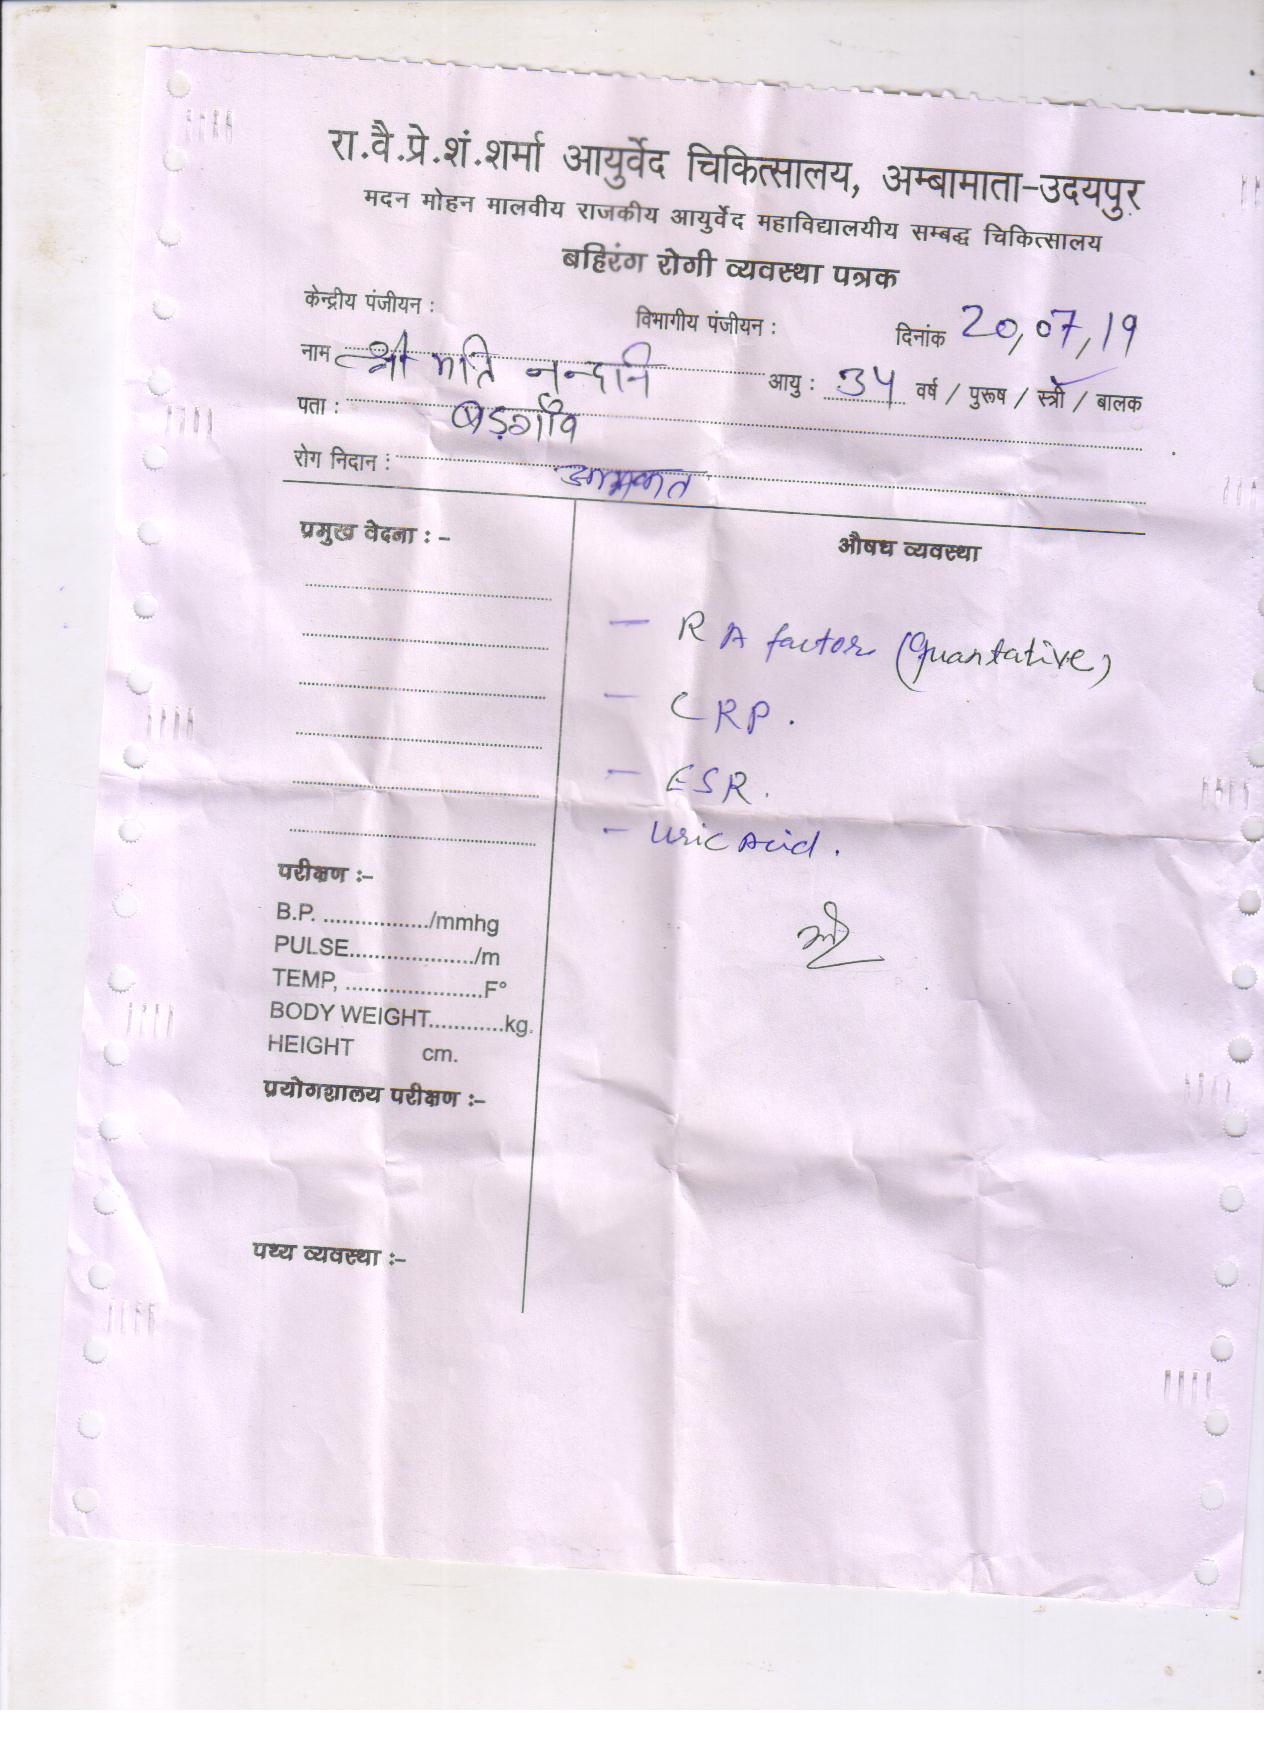 रा.वै.प्रे.शं.शर्मा आयुर्वेद चिकित्सालय, अम्बामाता-उदयपुर
मदन मोहन मालवीय राजकीय आयुर्वेद महाविद्यालयीय सम्बद्ध चिकित्सालय
बहिरंग रोगी व्यवस्था पत्रक
केन्द्रीय पंजीयन : विभागीय पंजीयन : दिनांक 20,07,19
नाम श्री मति नन्दानि आयु : 34 वर्ष / पुरूष / स्त्री / बालक
पता : बड़गाँव
रोग निदान :
प्रमुख वेदना : -
औषध व्यवस्था
- RA factor (Quantative)
- CRP.
- ESR.
- Uric Acid.
परीक्षण :-
B.P. ................./mmhg
PULSE..................../m
TEMP, ......................F°
BODY WEIGHT............kg.
HEIGHT cm.
प्रयोगशालय परीक्षण :-
पथ्य व्यवस्था :-